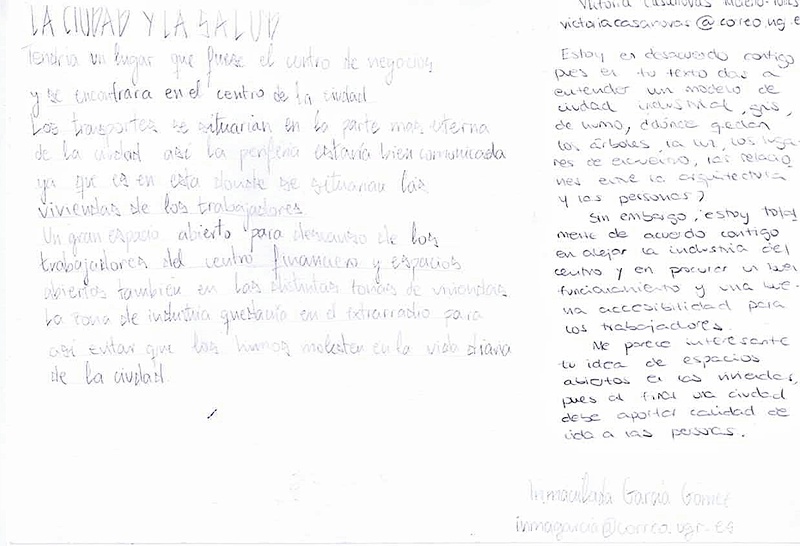 LA CIUDAD Y LA SALUD
Tendria un lugar que fuese el centro de negocios
y se encontrara en el centro de la ciudad.
Los transportes se situarian en la parte mas eterna
de la ciudad asi la periferia estaria bien comunicada
ya que es en esta donde se situarian las
viviendas de los trabajadores
Un gran espacio abierto para descanso de los
trabajadores del centro financiero y espacios
abiertos tambien en las distintas zonas de viviendas
La zona de industria questaria en el extrarradio para
asi evitar que los humos molesten en la vida diaria
de la ciudad.
Victoria Casanovas
victoriacasanovas@correo.ug.e
Estoy en desacuerdo contigo
pues en tu texto das a
entender un modelo de
ciudad industrial, gris,
de humo, dónde quedan
los árboles, la luz, los luga-
res de , las relacio
nes entre la arquitectura
y las personas?
Sin embargo, estoy total
mente de acuerdo contigo
en alejar la industria del
centro y en procurar un buen
funcionamiento y una bue-
na accesibilidad para
los trabajadores.
Me parece interesante
tu idea de espacios
abiertos en las viviendas,
pues al final una ciudad
debe aportar calidad de
vida a las personas.
Inmaculada García Gómez
inmagarcia@correo.ugr.es